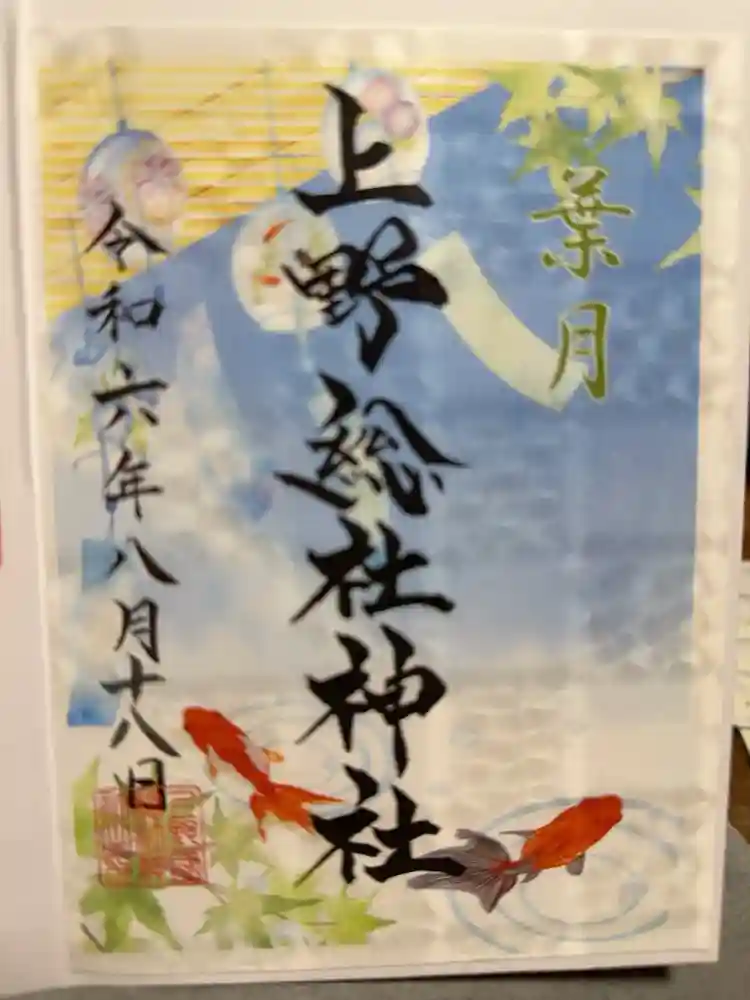 葉月
上野総社神社
令和六年八月十八日